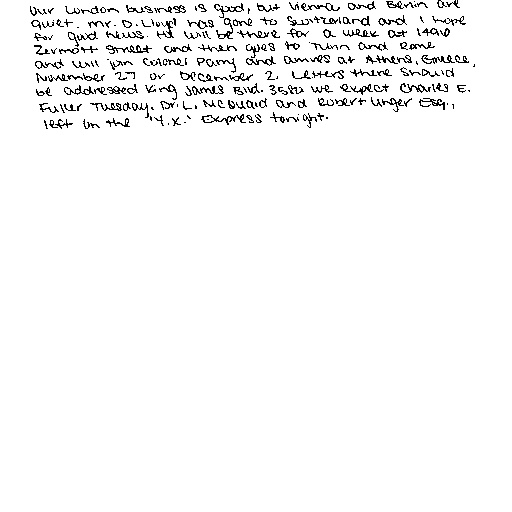 Our London business is good, but Vienna and Berlin are
quiet. Mr. D. Lloyd has gone to Switzerland and I hope
for good news. He will be there for a week at 1496
Zermott Street and then goes to Turin and Rome
and will join Colonel Parry and arrives at Athens, Greece,
November 27 or December 2. Letters there should
be addressed King James Blvd. 3580 we expect Charles E.
Fuller Tuesday. Dr. L. McQuaid and Robert Unger Esq.,
left on the 'Y.X.' Express tonight.